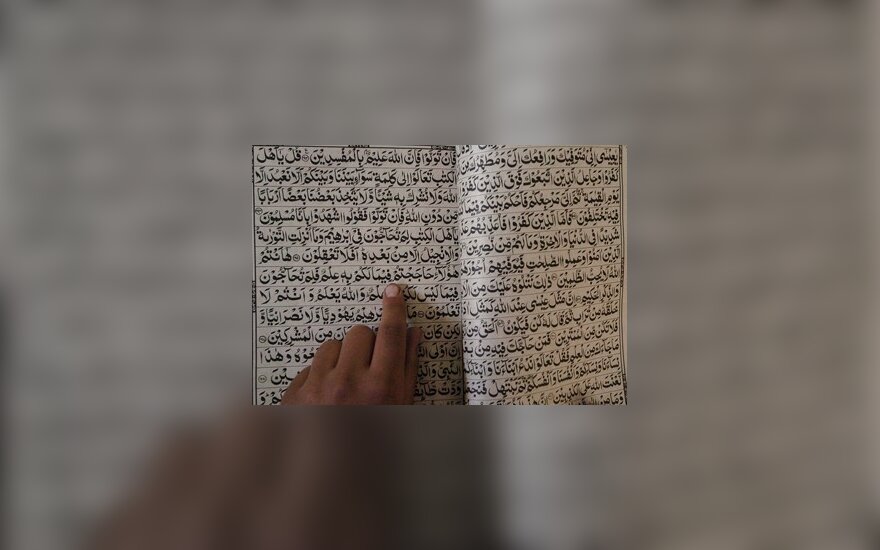 يٰعِيسٰى اِنِّىْ مُتَوَفِّيْكَ وَرَافِعُكَ اِلَىَّ وَمُطَهِّرُكَ
كَفَرُوْا وَجَاعِلُ الَّذِيْنَ اتَّبَعُوْكَ فَوْقَ الَّذِيْنَ كَفَرُوْۤا
يَوْمِ الْقِيٰمَةِ ثُمَّ اِلَىَّ مَرْجِعُكُمْ فَاَحْكُمُ بَيْنَكُمْ فِيْمَا
فِيْهِ تَخْتَلِفُوْنَ فَاَمَّا الَّذِيْنَ كَفَرُوْا فَاُعَذِّبُهُمْ
شَدِيْدًا فِى الدُّنْيَا وَالْاٰخِرَةِ وَمَا لَهُمْ مِّنْ نّٰصِرِيْنَ
اٰمَنُوْا وَعَمِلُوا الصّٰلِحٰتِ فَيُوَفِّيْهِمْ اُجُوْرَهُمْ
اللّٰهُ لَا يُحِبُّ الظّٰلِمِيْنَ ذٰلِكَ نَتْلُوْهُ عَلَيْكَ مِنَ
اِنَّ مَثَلَ عِيْسٰى عِنْدَ اللّٰهِ كَمَثَلِ
خَلَقَهٗ مِنْ تُرَابٍ ثُمَّ قَالَ لَهٗ كُنْ فَيَكُوْنُ اَلْحَقُّ مِنْ
فَلَا تَكُنْ مِّنَ الْمُمْتَرِيْنَ فَمَنْ حَآجَّكَ فِيْهِ مِنْۢ بَعْدِ
مَا جَآءَكَ مِنَ الْعِلْمِ فَقُلْ تَعَالَوْا نَدْعُ اَبْنَآءَنَا وَاَبْنَآءَكُمْ
وَنِسَآءَنَا وَنِسَآءَكُمْ وَاَنْفُسَنَا وَاَنْفُسَكُمْ ثُمَّ نَبْتَهِلْ فَنَجْعَلْ
لَّعْنَتَ اللّٰهِ عَلَى الْكٰذِبِيْنَ
وَمَا مِنْ
فَاِنْ تَوَلَّوْا فَاِنَّ اللّٰهَ عَلِيْمٌۢ بِالْمُفْسِدِيْنَ قُلْ يٰۤاَهْلَ
الْكِتٰبِ تَعَالَوْا اِلٰى كَلِمَةٍ سَوَآءٍۢ بَيْنَنَا وَبَيْنَكُمْ اَلَّا نَعْبُدَ اِلَّا
اللّٰهَ وَلَا نُشْرِكَ بِهٖ شَيْـًٔا وَّلَا يَتَّخِذَ بَعْضُنَا بَعْضًا اَرْبَابًا
مِّنْ دُوْنِ اللّٰهِ فَاِنْ تَوَلَّوْا فَقُوْلُوا اشْهَدُوْا بِاَنَّا مُسْلِمُوْنَ
يٰۤاَهْلَ الْكِتٰبِ لِمَ تُحَآجُّوْنَ فِىْۤ اِبْرٰهِيْمَ وَمَاۤ اُنْزِلَتِ التَّوْرٰىةُ
وَالْاِنْجِيْلُ اِلَّا مِنْۢ بَعْدِهٖ اَفَلَا تَعْقِلُوْنَ هٰۤاَنْتُمْ
هٰۤؤُلَآءِ حَاجَجْتُمْ فِيْمَا لَكُمْ بِهٖ عِلْمٌ فَلِمَ تُحَآجُّوْنَ
فِيْمَا لَيْسَ لَكُمْ عِلْمٌ وَاللّٰهُ يَعْلَمُ وَاَنْتُمْ لَا
تَعْلَمُوْنَ مَا اِبْرٰهِيْمُ يَهُوْدِيًّا وَّلَا نَصْرَانِيًّا وَّ
لٰكِنْ كَانَ كَانَ مِنَ الْمُشْرِكِيْنَ
اِنَّ اَوْلَى اتَّبَعُوْهُ وَهٰذَا
النَّبِىُّ وَالَّذِيْنَ
وَدَّتْ طَّآئِفَةٌ